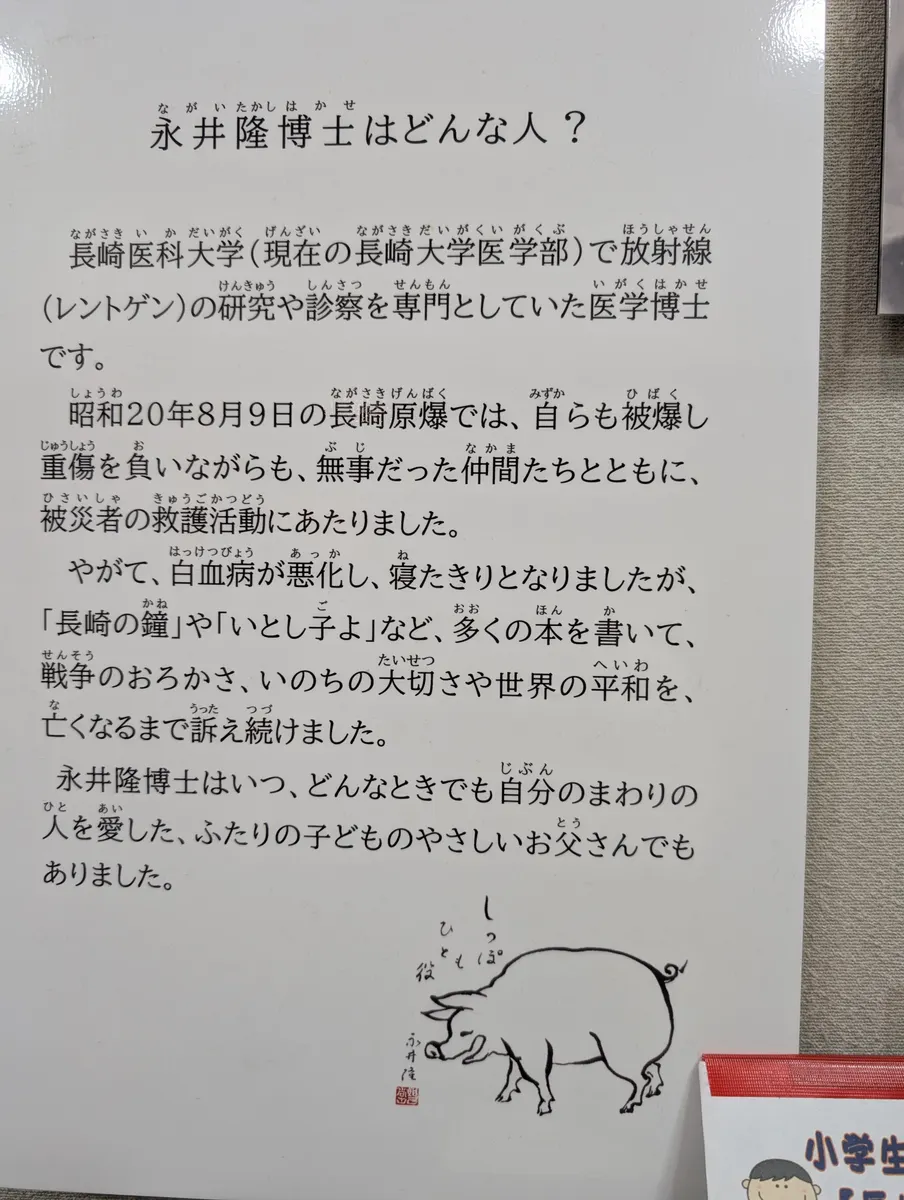 永井隆博士はどんな人？
長崎医科大学(現在の長崎大学医学部)で放射線
(レントゲン)の研究や診察を専門としていた医学博士
です。
昭和20年8月9日の長崎原爆では、自らも被爆し
重傷を負いながらも、無事だった仲間たちとともに、
被災者の救護活動にあたりました。
やがて、白血病が悪化し、寝たきりとなりましたが、
「長崎の鐘」や「いとし子よ」など、多くの本を書いて、
戦争のおろかさ、いのちの大切さや世界の平和を、
亡くなるまで訴え続けました。
永井隆博士はいつ、どんなときでも自分のまわりの
人を愛した、ふたりの子どものやさしいお父さんでも
ありました。
しっぽも
ひと役
永井隆
小学生